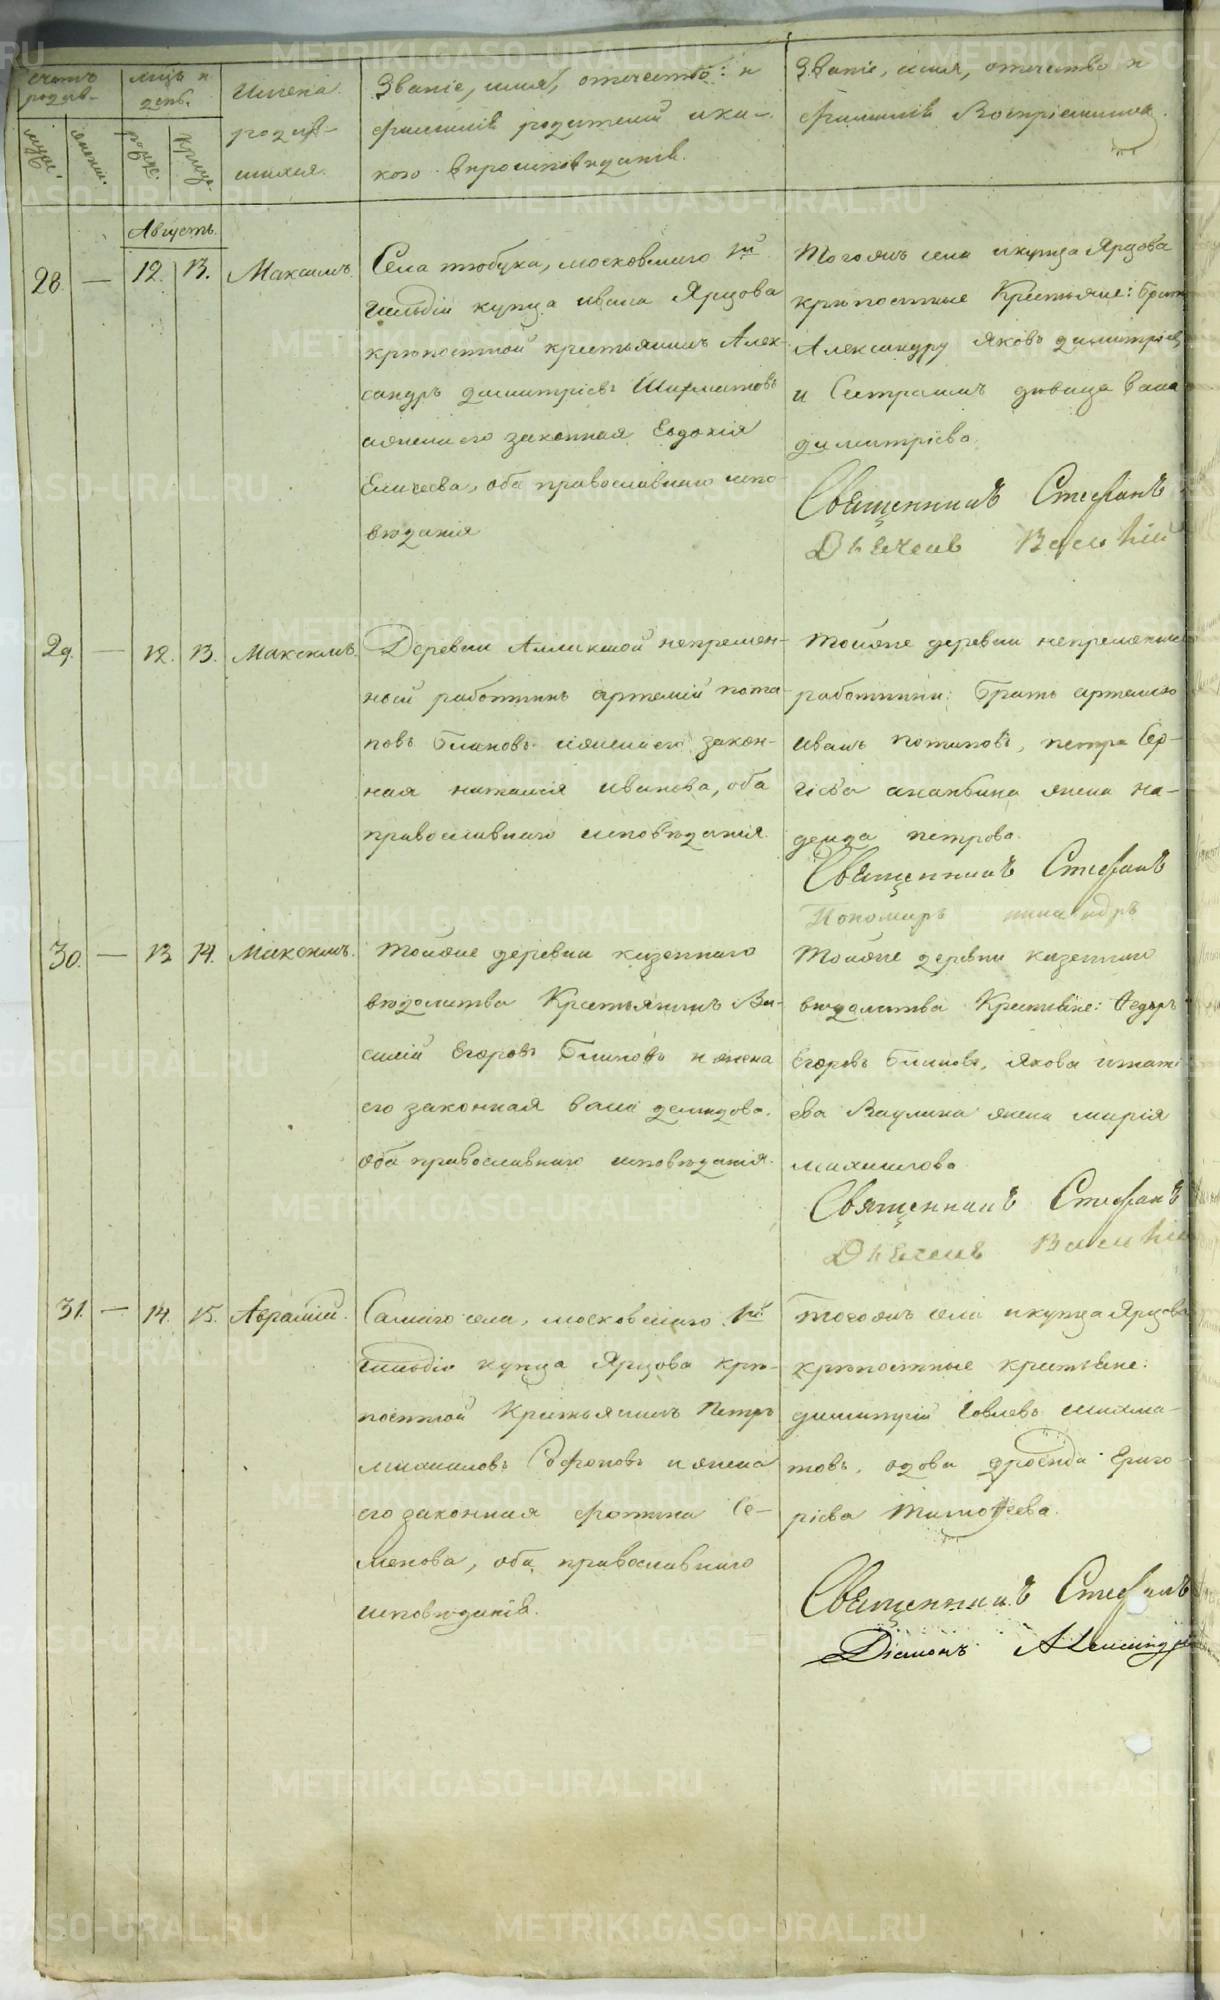 счетъ родив-
мѣсъ и день.
Имена родив-
шихся.
Званіе, имя, отечество, и
фамилія родителей и ка-
кого вѣроисповѣданія.
Званіе, имя, отечество и
фамилія Воспріемниковъ.
муж.
женск.
рожд.
крещ.
Августъ.
28. — 12. 13. Максимъ.
Села Тюбука, московскаго 1й
гильдіи купца ивана Ярцова
крѣпостной крестьянинъ Алек-
сандръ димитріевъ Шахматовъ
и жена его законная Евдокія
Елисеева, оба православнаго испо-
вѣданія
Тогожъ села и купца Ярцова
крѣпостные Крестьяне: братъ
Александру Яковъ димитріевъ
и Сестра девица Васса
димитріева.
Священникъ Стефанъ
Дьячекъ Василій
29. — 12. 13. Максимъ.
Деревни непремен-
ный работникъ артемій пота-
повъ Блиновъ и жена его закон-
ная наталія иванова, оба
православнаго исповѣданія.
Тойже деревни непременные
работники: братъ артемію
иванъ потаповъ, петра Сер-
гіева ананьина жена на-
дежда петрова.
Священникъ Стефанъ
Пономарь
30. — 13 14. Максимъ.
Тойже деревни казеннаго
вѣдомства Крестьянинъ Ва-
силій Егоровъ Блиновъ и жена
его законная васса демидова.
Оба православнаго исповѣданія.
Тойже деревни казеннаго
вѣдомства Крестьяне: Ѳедоръ
Егоровъ Блиновъ, якова игнаті-
ева Ваулина жена марія
михаилова
Священникъ Стефанъ
Дьячекъ Василій
31. — 14. 15. Аврамій.
Самаго села, московскаго 1й
гильдіи купца Ярцова крѣ-
постной Крестьянинъ Петръ
михаиловъ Софоновъ и жена
его законная фотина Се-
менова, оба православнаго
исповѣданія.
Тогожъ села и купца Ярцова
крѣпостные крестьяне:
димитрій Іовлевъ шахма-
товъ, вдова дросида Григо-
ріева Тимоѳеева.
Священникъ Стефанъ
Діаконъ Александръ
METRIKI.GASO-URAL.RU